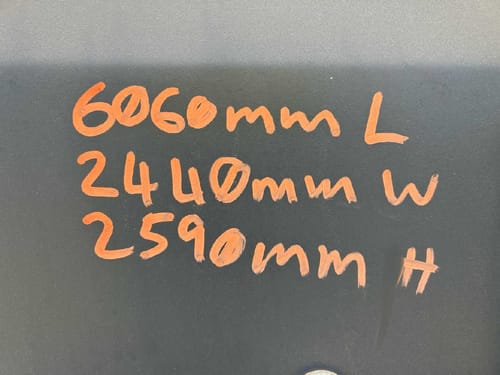 6060mm L
2440mm W
2590mm H